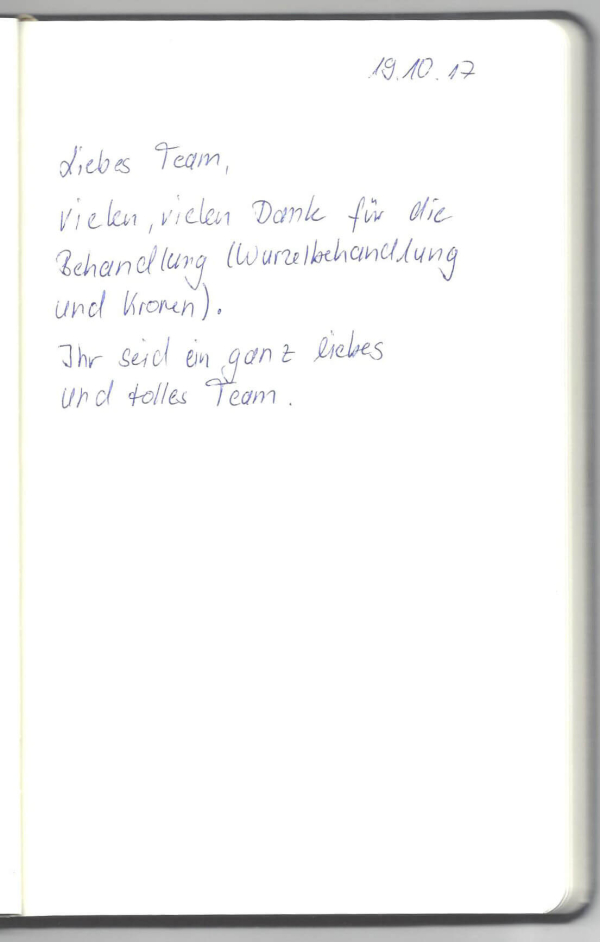 19.10.17
Liebes Team,
vielen, vielen Dank für die
Behandlung (Wurzelbehandlung
und Kronen).
Ihr seid ein ganz liebes
und tolles Team.